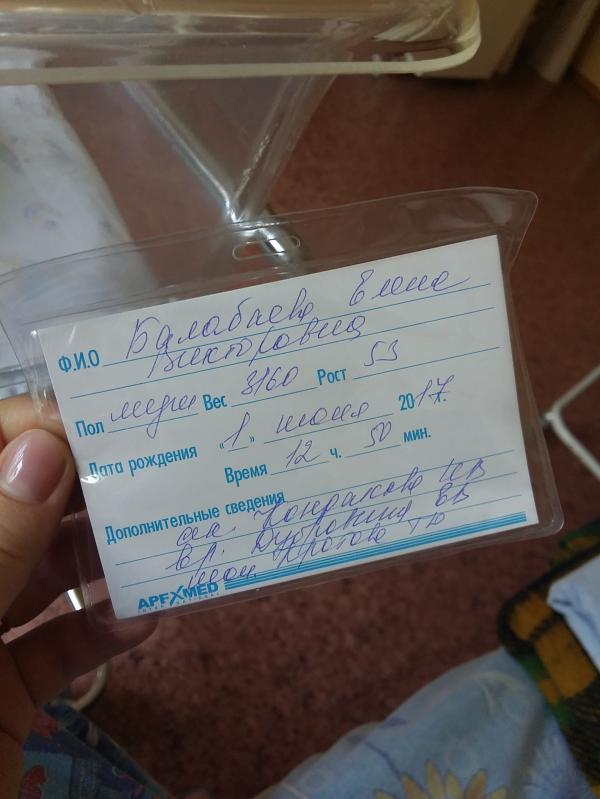 Ф.И.О Балабаева Елена
Викторовна
Пол муж Вес 3160 Рост 53
Дата рождения «1» июня 2017г.
Время 12 ч. 50 мин.
Дополнительные сведения
ак. Кондракова
вр. Дубровина ЕВ
Кротова
APEXMED
INTERNATIONAL